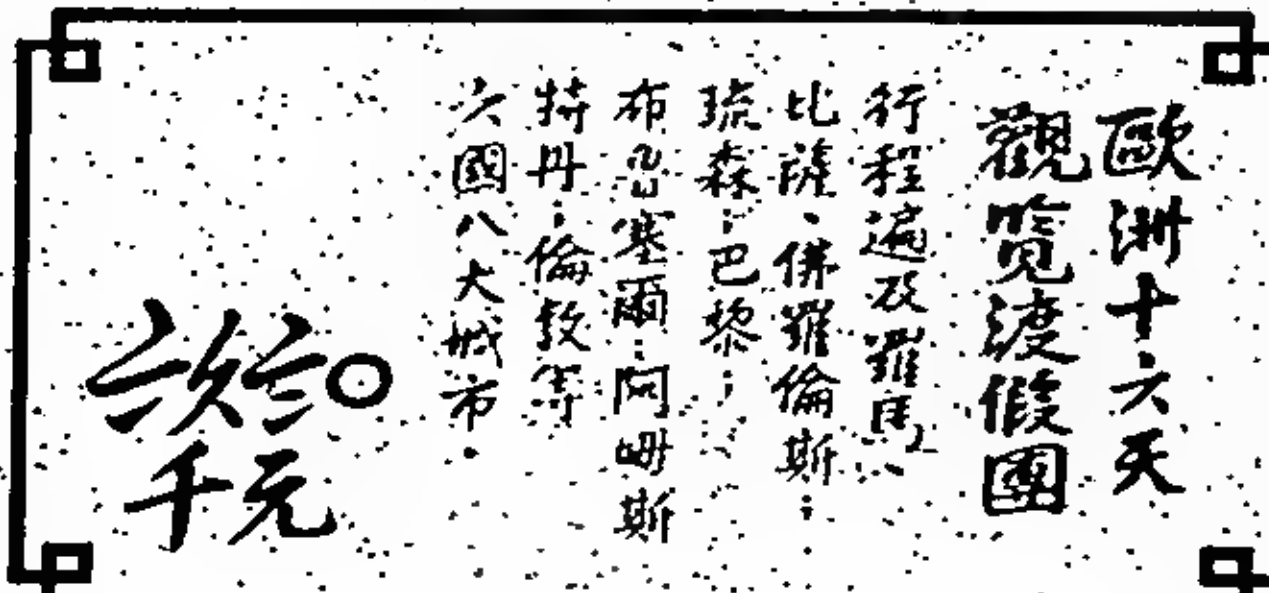 歐洲十六天
觀覽渡假團
行程遍及羅馬、
比薩、佛羅倫斯:
琉森:巴黎:
布呂塞爾:阿姆斯
特丹:倫敦等
六國八大城市.
千元